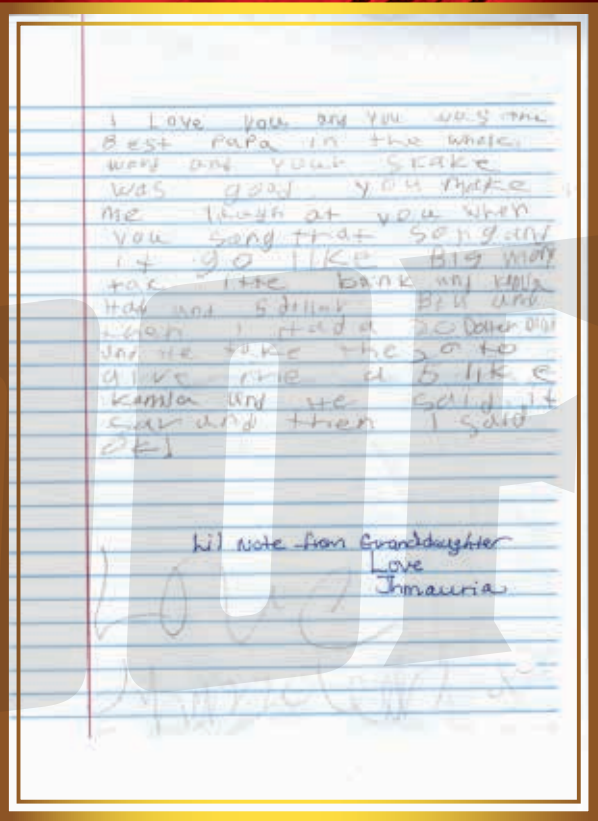 I Love you and you was the
Best PaPa in the whole
word and your skake
was good you make
me laugh at you when
you sang that song and
it go like Big mony
bank and kamia
Had and 5 dillar Bill and
then I Had a 20 Doller Bill
and He take the 20 to
give me a 5 like
kamia and He said it
and then I said
OK!
Lil Note from Granddaughter
Love
Jhmauria
Love